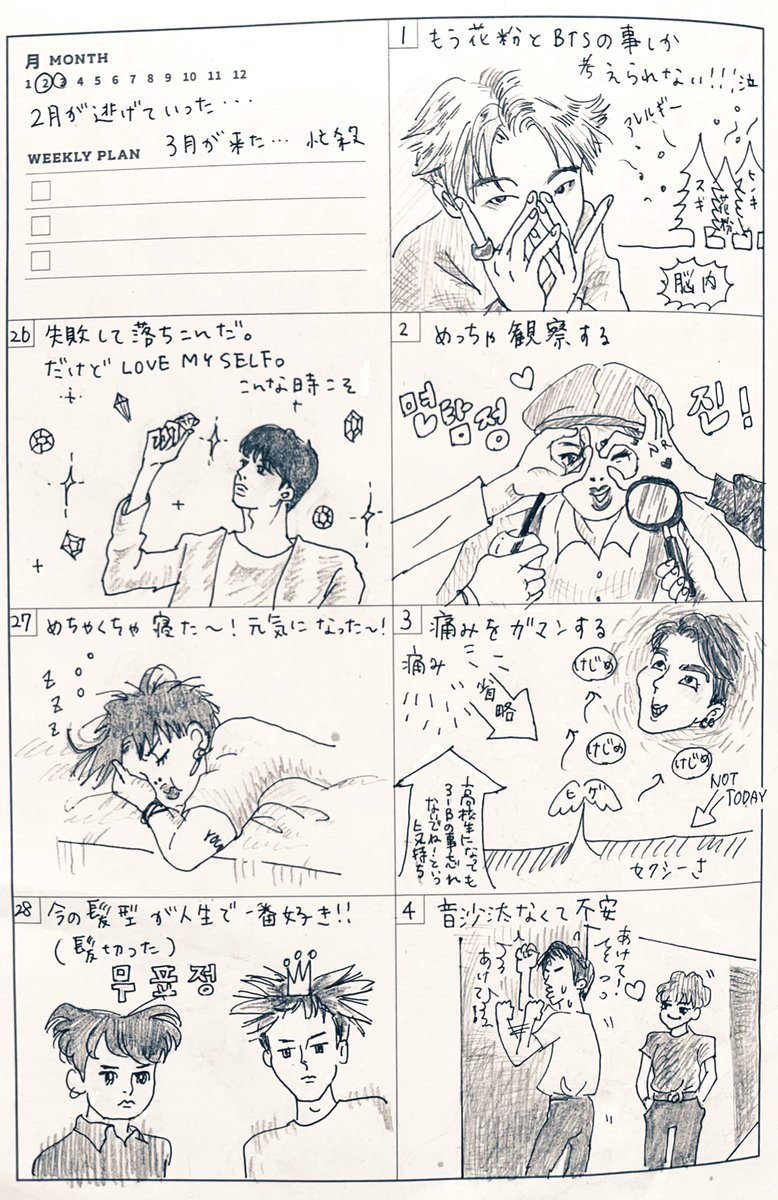 月 MONTH
1 2 3 4 5 6 7 8 9 10 11 12
2月が逃げていった・・・
3月が来た… 忙殺
WEEKLY PLAN
1 もう花粉とBTSの事しか
考えられない!!!泣
アレルギー
スギ
花粉
ヒノキ
脳内
26 失敗して落ちこんだ。
だけど LOVE MYSELF。
こんな時こそ
2 めっちゃ観察する
명탐정
진!
27 めちゃくちゃ寝た〜!元気になった〜!
z
z
z
3 痛みをガマンする
痛み
省略
けじめ
けじめ
けじめ
ヒゲ
NOT
TODAY
セクシーさ
高校生になっても
3-Bの事忘れ
ないでねーという
気持ち
28 今の髪型が人生で一番好き!!
(髪切った)
무표정
4 音沙汰なくて不安
あけて!
あけて!!